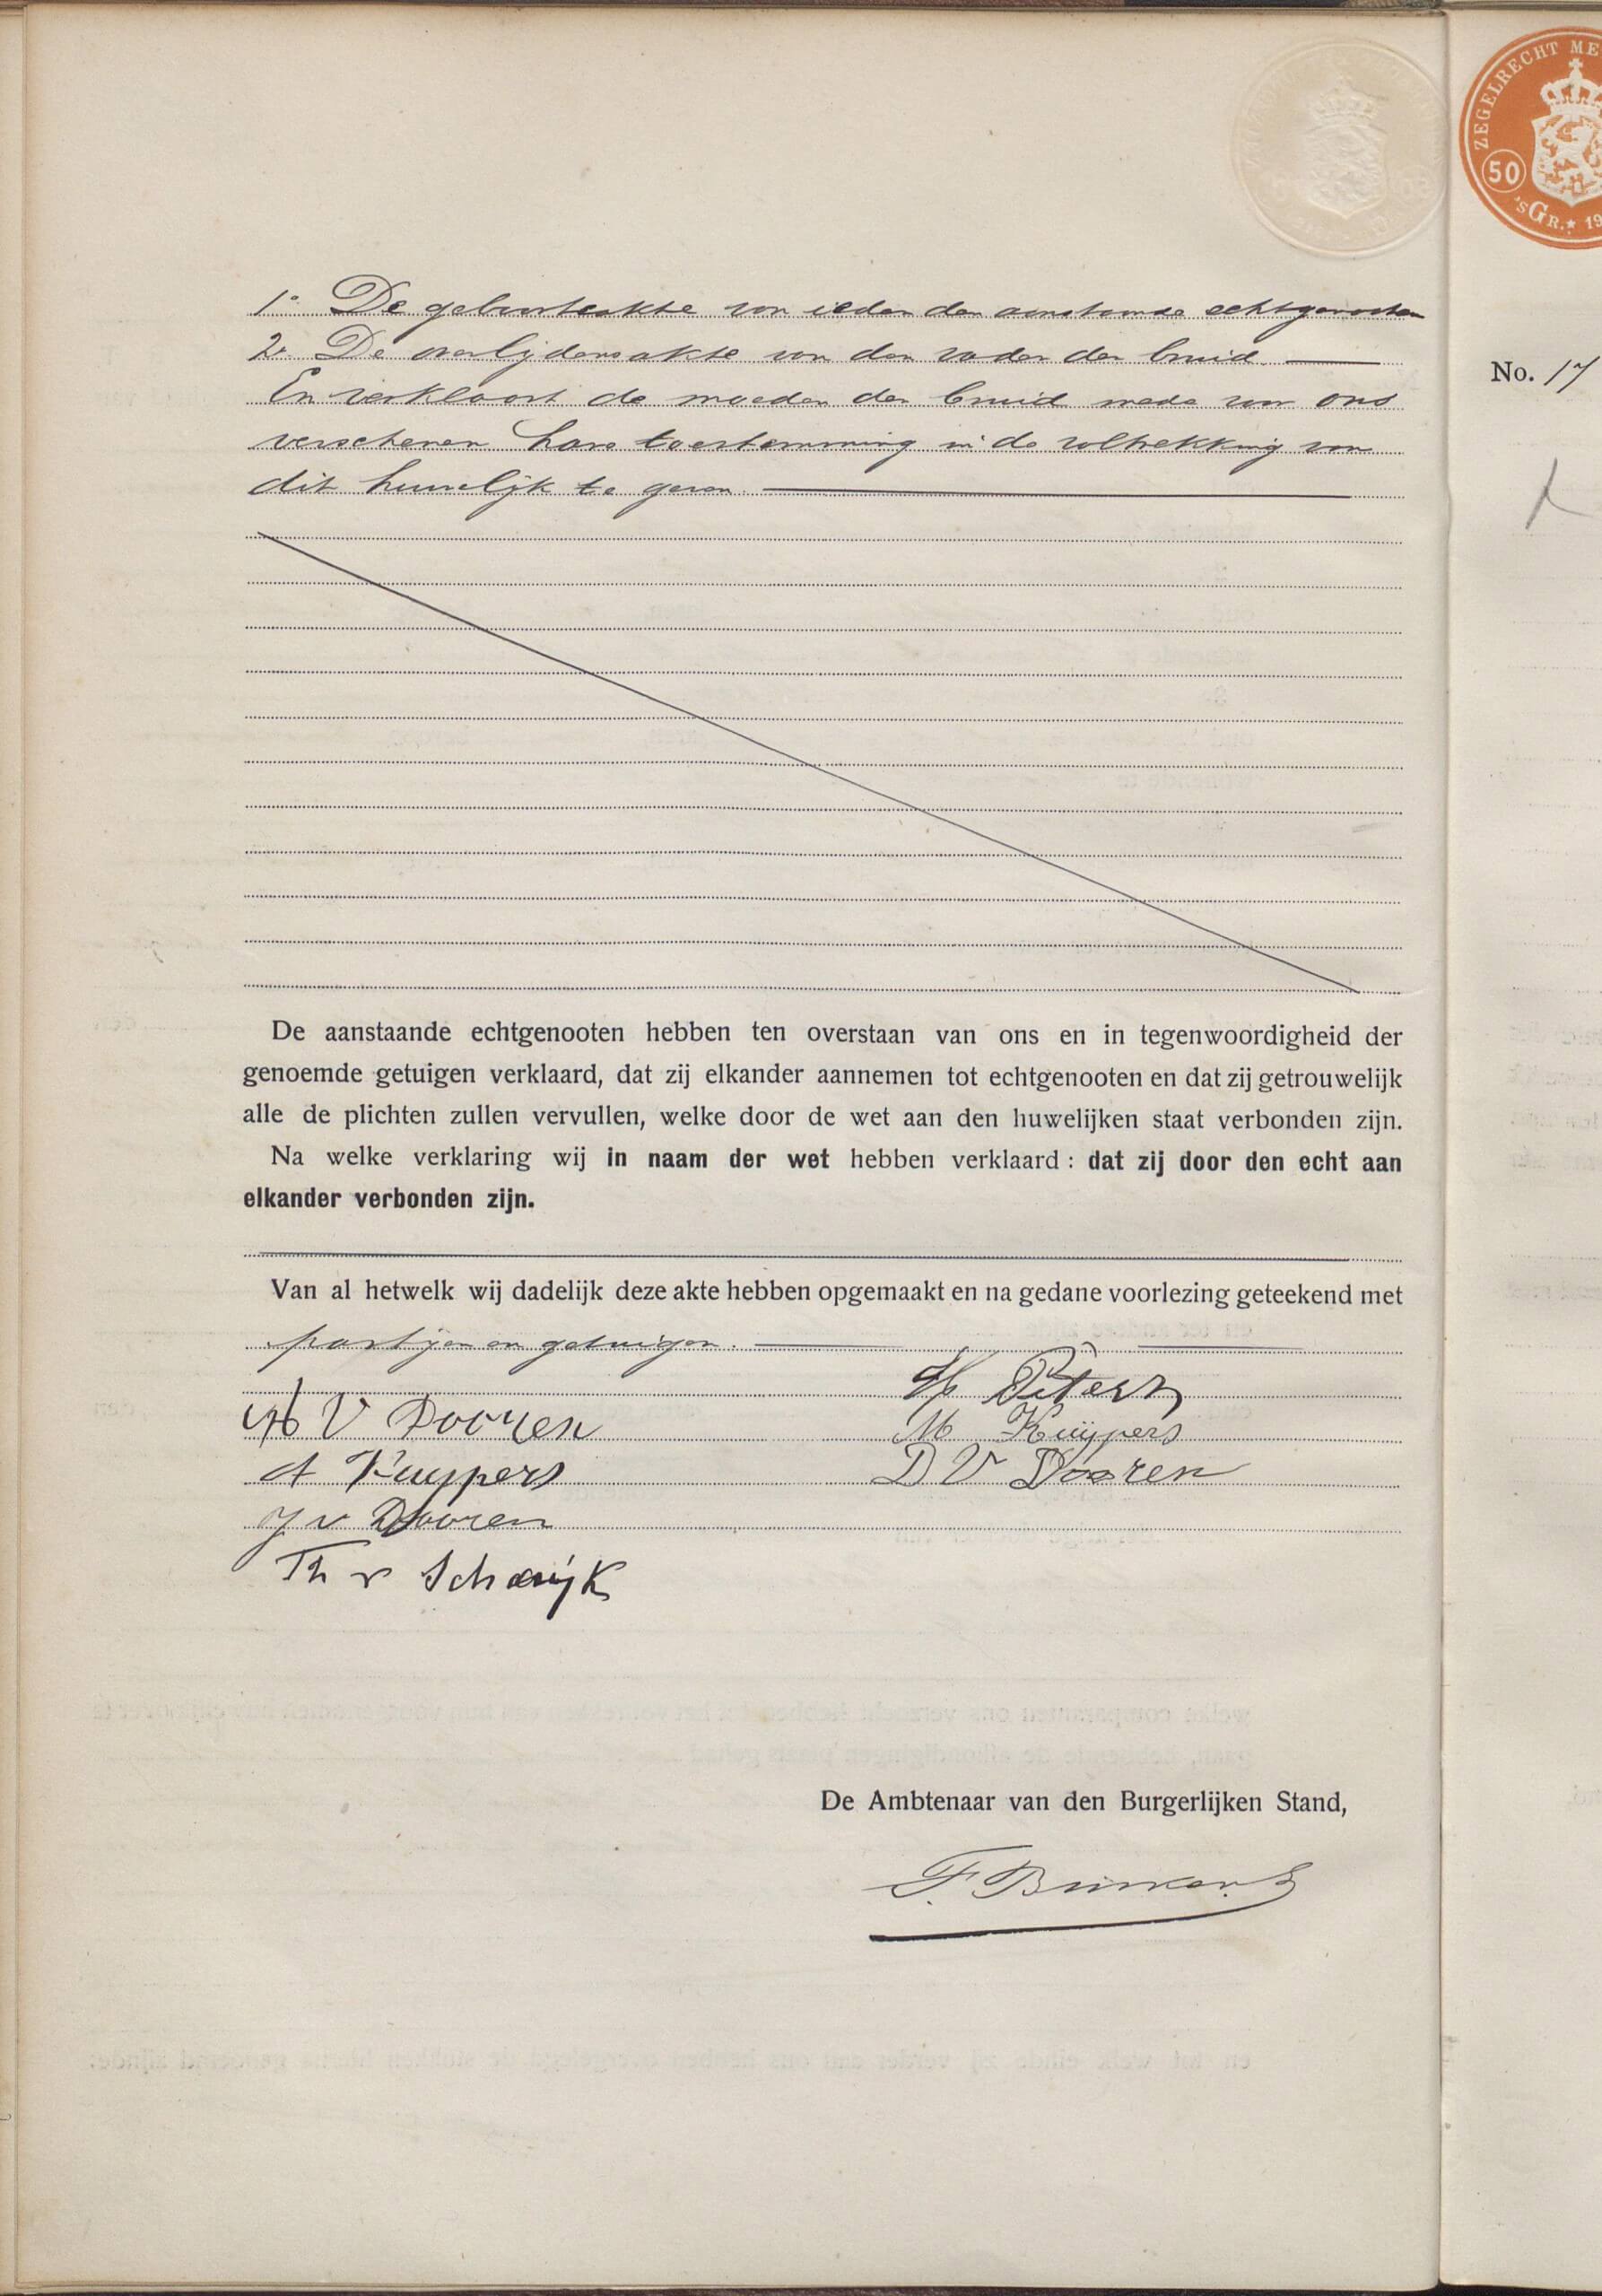 ZEGELRECHT ME
50
'sGR.★ 19
1º. De geboorteakte van ieder der aanstaande echtgenooten
2º. De overlijdensakte van den vader der bruid
En verklaart de moeder der bruid mede voor ons
verschenen hare toestemming in de voltrekking van
dit huwelijk te geven.
De aanstaande echtgenooten hebben ten overstaan van ons en in tegenwoordigheid der
genoemde getuigen verklaard, dat zij elkander aannemen tot echtgenooten en dat zij getrouwelijk
alle de plichten zullen vervullen, welke door de wet aan den huwelijken staat verbonden zijn.
Na welke verklaring wij in naam der wet hebben verklaard: dat zij door den echt aan
elkander verbonden zijn.
Van al hetwelk wij dadelijk deze akte hebben opgemaakt en na gedane voorlezing geteekend met
partijen en getuigen.
Peters
V Dooren
M Kuijpers
A Kuypers
D V Dooren
J v Dooren
Th v Schaijk
De Ambtenaar van den Burgerlijken Stand,
No. 17